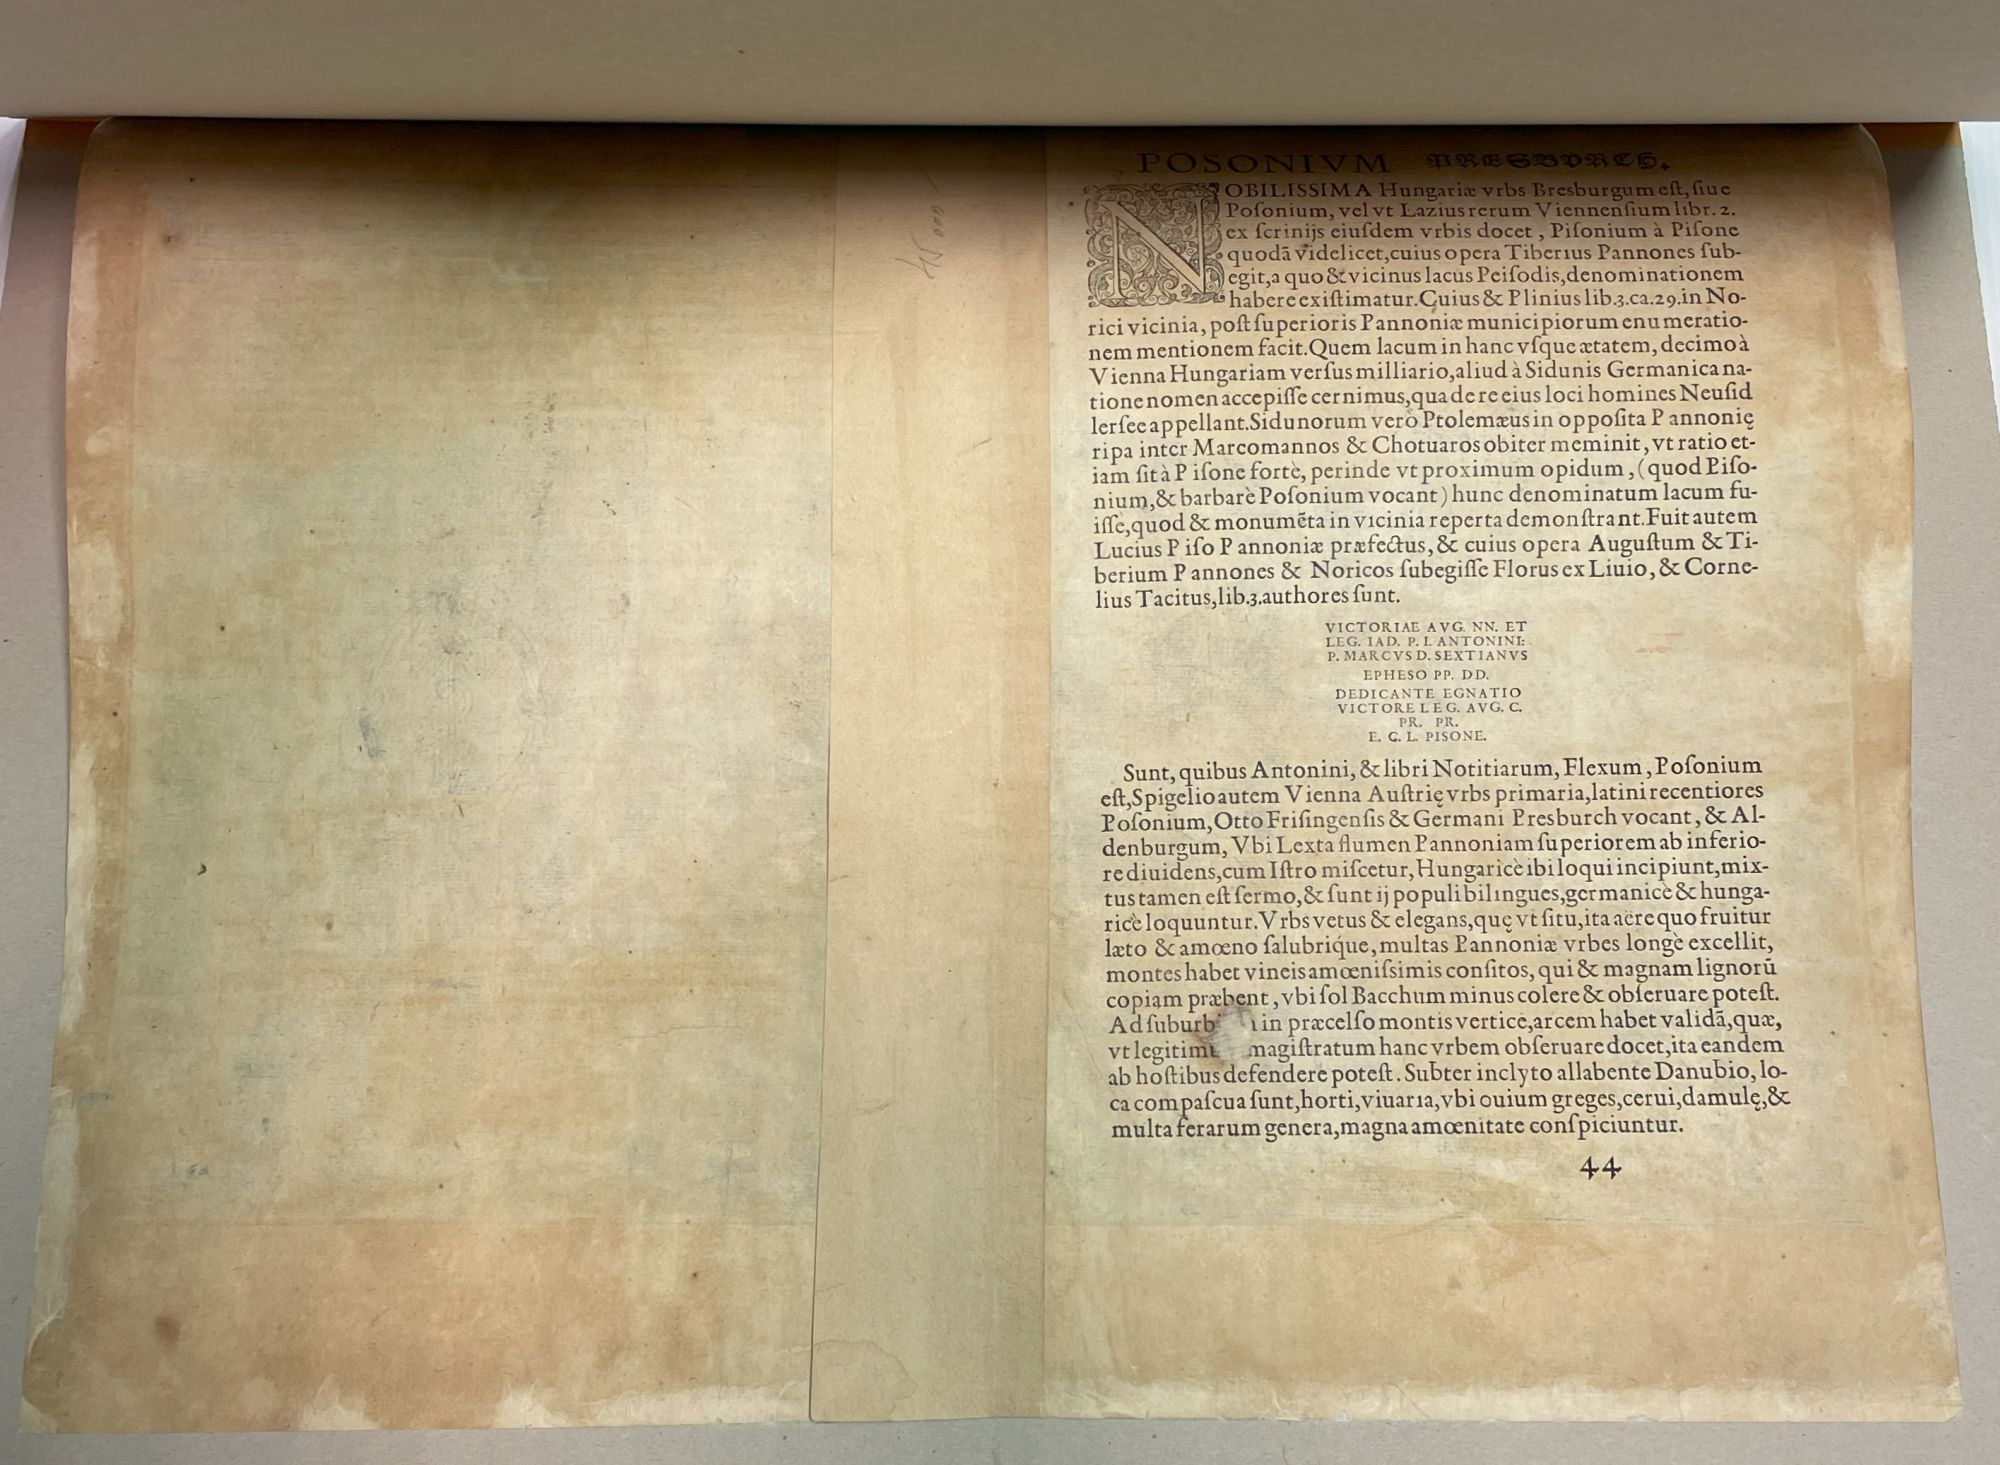 45000
POSONIVM PRESBVRCH.
NOBILISSIMA Hungariæ vrbs Bresburgum est, siue
Posonium, vel vt Lazius rerum Viennensium libr. 2.
ex scrinijs eiusdem vrbis docet, Pisonium à Pisone
quodã videlicet, cuius opera Tiberius Pannones sub-
egit, a quo & vicinus lacus Peisodis, denominationem
habere existimatur. Cuius & Plinius lib.3.ca.29.in No-
rici vicinia, post superioris Pannoniæ municipiorum enumeratio-
nem mentionem facit. Quem lacum in hanc vsque ætatem, decimo à
Vienna Hungariam versus milliario, aliud à Sidunis Germanica na-
tione nomen accepisse cernimus, qua de re eius loci homines Neusid
lersee appellant. Sidunorum verò Ptolemæus in opposita Pannonię
ripa inter Marcomannos & Chotuaros obiter meminit, vt ratio et-
iam sit à Pisone fortè, perinde vt proximum opidum, (quod Piso-
nium, & barbarè Posonium vocant) hunc denominatum lacum fu-
isse, quod & monumẽta in vicinia reperta demonstrant. Fuit autem
Lucius Piso Pannoniæ præfectus, & cuius opera Augustum & Ti-
berium Pannones & Noricos subegisse Florus ex Liuio, & Corne-
lius Tacitus, lib.3. authores sunt.
VICTORIAE AVG. NN. ET
LEG. IAD. P. I. ANTONINI:
P. MARCVS D. SEXTIANVS
EPHESO PP. DD.
DEDICANTE EGNATIO
VICTORE LEG. AVG. C.
PR. PR.
E. C. L. PISONE.
Sunt, quibus Antonini, & libri Notitiarum, Flexum, Posonium
est, Spigelio autem Vienna Austrię vrbs primaria, latini recentiores
Posonium, Otto Frisingensis & Germani Presburch vocant, & Al-
denburgum, Vbi Lexta flumen Pannoniam superiorem ab inferio-
re diuidens, cum Istro miscetur, Hungaricè ibi loqui incipiunt, mix-
tus tamen est sermo, & sunt ij populi bilingues, germanicè & hunga-
ricè loquuntur. Vrbs vetus & elegans, quę vt situ, ita aëre quo fruitur
læto & amœno salubrique, multas Pannoniæ vrbes longè excellit,
montes habet vineis amœnissimis consitos, qui & magnam lignorũ
copiam præbent, vbi sol Bacchum minus colere & obseruare potest.
Ad suburb in præcelso montis vertice, arcem habet validã, quæ,
vt legitim magistratum hanc vrbem obseruare docet, ita eandem
ab hostibus defendere potest. Subter inclyto allabente Danubio, lo-
ca compascua sunt, horti, viuaria, vbi ouium greges, cerui, damulę, &
multa ferarum genera, magna amœnitate conspiciuntur.
44